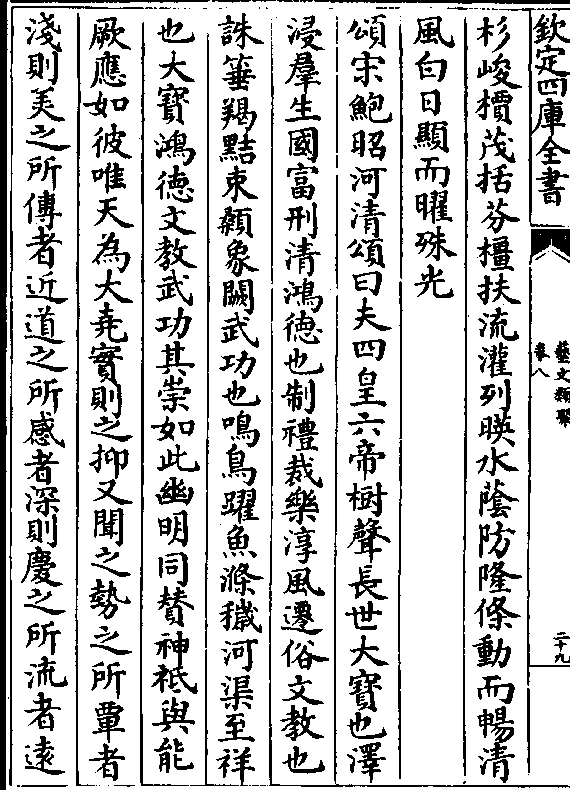 欽定四庫全書
藝文類聚
卷八
二十九
杉峻檟茂括芬橿扶流灌列暎水蔭防隆條動而暢清
風白日顯而曜殊光
頌宋鮑昭河清頌曰夫四皇六帝樹聲長世大寳也澤
浸羣生國富刑清鴻德也制禮裁樂淳風遷俗文教也
誅箠羯黠束顙象闕武功也鳴鳥躍魚滌穢河渠至祥
也大寳鴻德文教武功其崇如此幽明同賛神祗與能
厥應如彼唯天為大堯實則之抑又聞之勢之所覃者
淺則美之所傳者近道之所感者深則慶之所流者遠